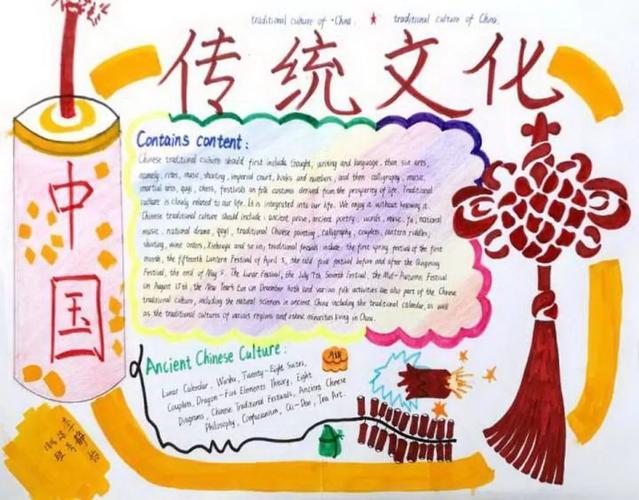 traditional culture of China. ★ traditional culture of China.
传统文化
中国
Contains content:
Chinese traditional culture should first include thought, writing and language, then six arts,
namely, rites, music, shooting, imperial court, books and numbers, and then calligraphy, music,
martial arts, quyi, chess, festivals an folk customs derived from the prosperity of life. Traditional
culture is closely related to our life. It is integrated into our life. We enjoy it without knowing it.
Chinese traditional culture should include: ancient prose, ancient poetry, words, music, fu, national
music, national drama, quyi, traditional Chinese painting, calligraphy, couplets, lantern riddles,
shooting, wine orders, Xiehouyu and so on; traditional festivals include: the first spring festival of the first
month, the fifteenth Lantern Festival of April 5, the cold food festival before and after the Qingming
Festival, the end of May 5. The Lunar Festival, the July 7th Seventh Festival, the Mid-Autumn Festival
on August 15th, the New Year's Eve on December 30th and various folk activities are also part of the Chinese
traditional culture, including the natural sciences in ancient China including the traditional calendar, as well
as the traditional cultures of various regions and ethnic minorities living in China.
Ancient Chinese Culture:
Lunar Calendar, Wushu, Twenty-Eight Suites,
Couplets, Dragon-Five Elements Theory, Eight
Diagrams, Chinese Traditional Festivals, Ancient Chinese
Philosophy, Confucianism, Ci-Dao, Tea Art.